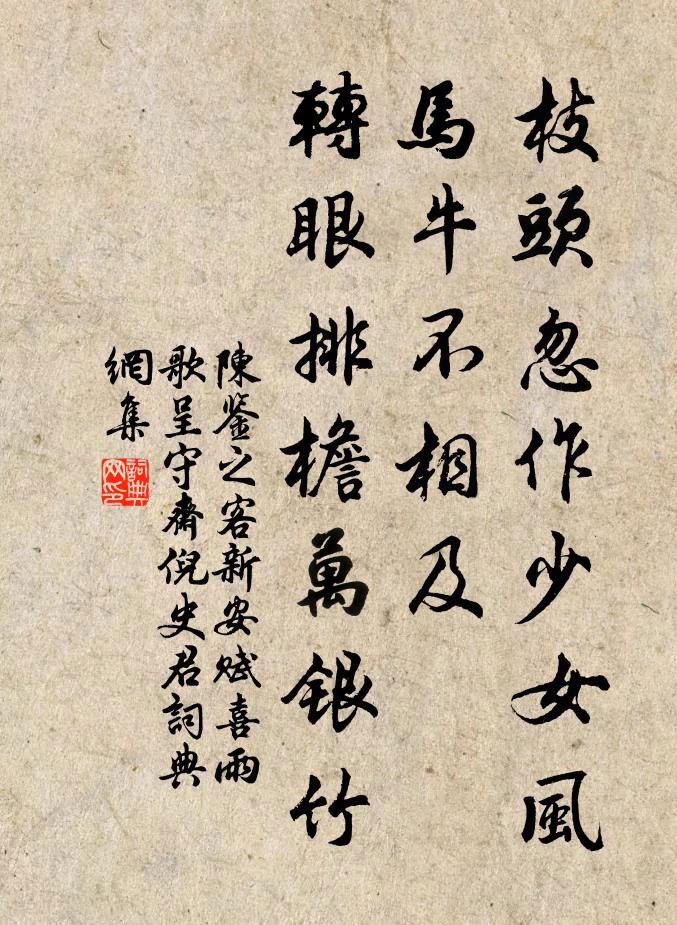 枝頭忽作少女風
馬牛不相及
轉眼排檐萬銀竹
陳鉴之客新安賦喜雨
歌呈守齋倪史君詞典
網集
詞典
网印